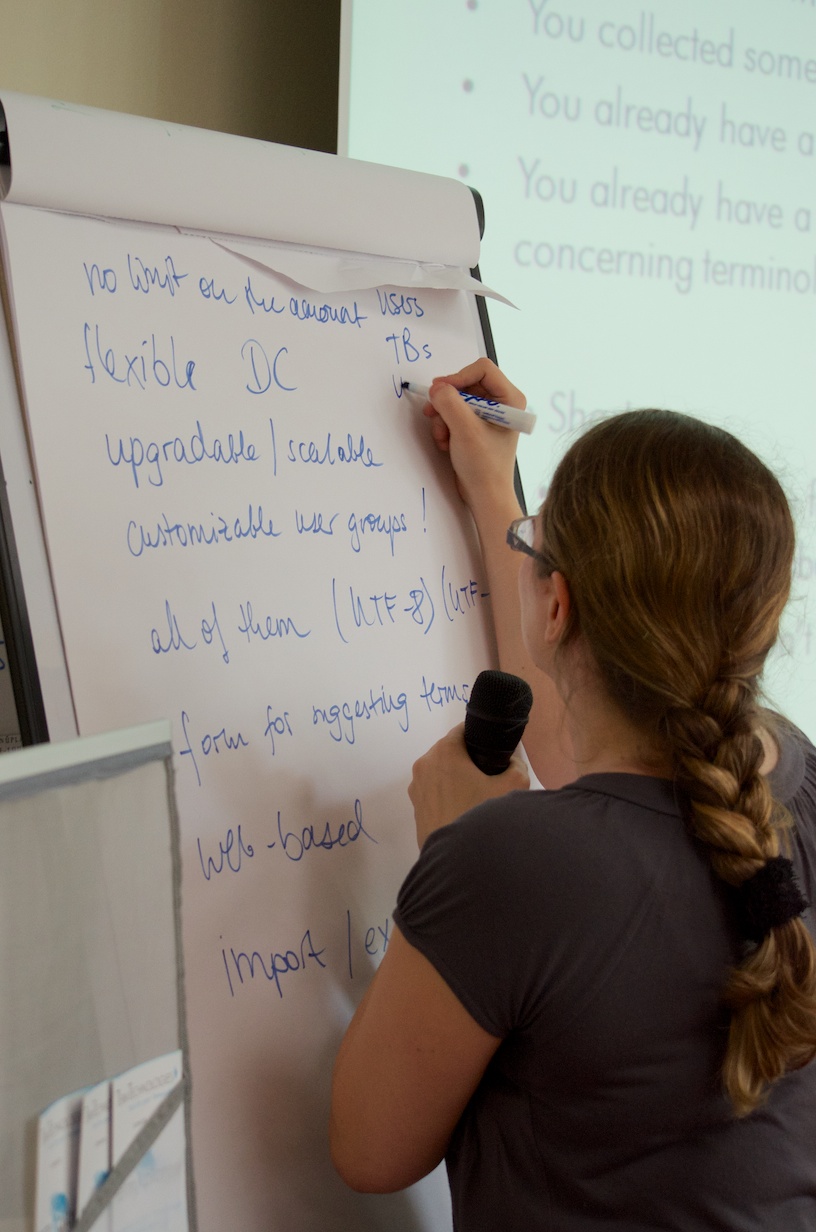 You collected some
You already have a
You already have a
concerning terminol
no limit on the amount users
TBs
flexible DC
upgradable / scalable
customizable user groups !
all of them (UTF-8) (UTF-
form for suggesting terms
web-based
import / ex